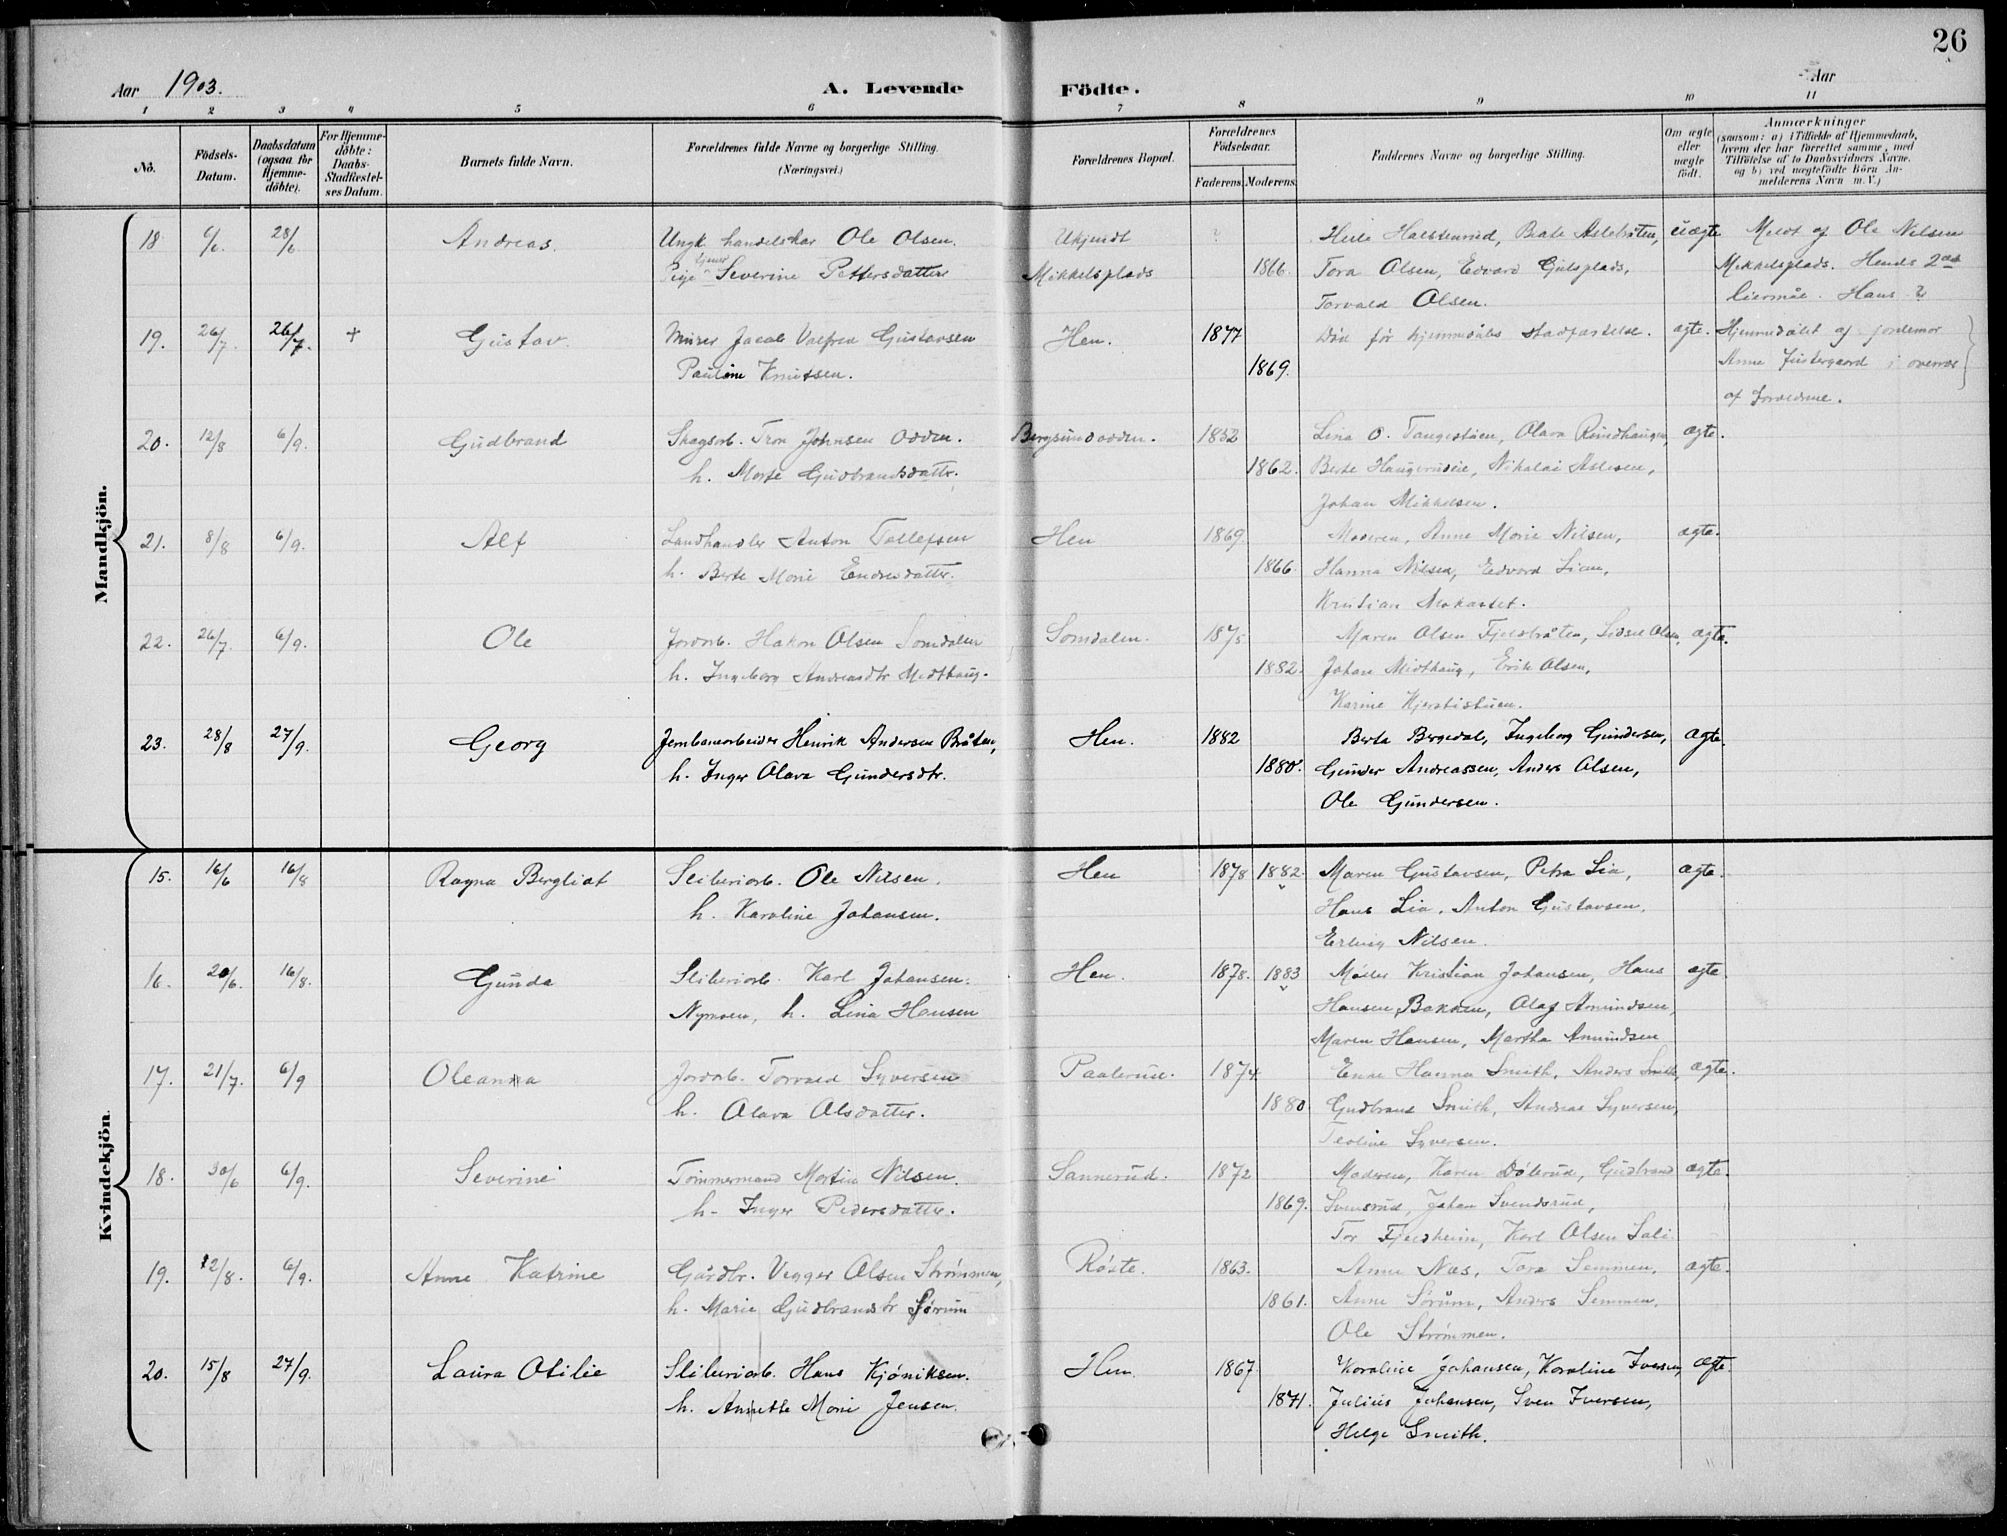 26
Aar 1903.
A. Levende Födte.
Aar
1 2 3 4 5 6 7 8 9 10 11
No.
Födsels-Datum.
Daabsdatum (ogsaa for Hjemme-döbte).
For Hjemme-döbte: Daabs-Stadfæstel-ses Datum.
Barnets fulde Navn.
Forældrenes fulde Navne og borgerlige Stilling. (Næringsvei.)
Forældrenes Bopæl.
Forældrenes Födselsaar.
Faderens. Moderens.
Faddernes Navne og borgerlige Stilling.
Om ægte eller uægte födt.
Anmærkninger
(saasom: a) i Tilfælde af Hjemmedaab, hvem der har forrettet samme, med Tilföielse af to Daabsvidners Navne. og b) ved uægtefödte Börn Anmelderens Navn m. V.)
Mandkjön.
18 6/6 28/6 Andreas Ungk. handelskar Ole Olsen. Ukjendt ? Halstenrud, Beate uægte Meldt af Ole Nilsen
Pige Severine Pettersdatter Mikkelsplads 1866. Tora Olsen, Edvard Gulsplads, Mikkelsplads. Hendes 2det
Torvald Olsen. leiermål. Hans ?
19. 26/7. 26/7. + Gustav Murer Jacob Valfred Gustavsen Hen. 1877 Død før hjemmedåbs stadfæstelse. ægte. Hjemmedøbt af jordemor
Pauline Knutsen. 1869. Anne i overvær
af forældrene.
20. 12/8 6/9. Gudbrand Skogsarb. Tron Johnsen Odden. Bergsundodden. 1852 Lina O. Tangestuen, Olava Rundhaugen, ægte.
h. Marte Gudbrandsdatter. 1862. Berte Haugerudeie, Nikolai Aslesen,
Johan Mikkelsen.
21. 8/8 6/9. Alf Landhandler Anton Tollefsen Hen 1869. Moderen, Anne Marie Nilsen, ægte.
h. Berte Marie Endresdatter. 1866. Hanna Nilsen, Edvard Lien,
Kristian
22. 26/7. 6/9. Ole Jordarb. Hakon Olsen Somdalen Somdalen. 1875 Maren Olsen Fjeldbråten, Sidsel Olsen, ægte.
h. Ingeborg Andreasdtr Midthaug. 1882. Johan Midthaug, Erik Olsen,
Karine Kjerstistuen.
23. 28/8 27/9. Georg Jernbanearbeider Henrik Andersen Bråten, Hen. 1882 Berta Bergedal, Ingeborg Gundersen, Ægte.
h. Inger Olava Gundersdtr. 1880. Gunder Andreassen, Anders Olsen,
Ole Gundersen.
Kvindekjön.
15. 16/6 16/8 Ragna Bergliot Sliberiarb. Ole Nilsen. Hen 1878 1882 Maren Gustavsen, Petra Lia, ægte.
h. Karoline Johansen. Hans Lia, Anton Gustavsen,
Erling Nilsen.
16. 20/6. 16/8. Gunda Sliberiarb. Karl Johansen. Hen. 1878. 1883 Møller Kristian Johansen, Hans ægte
Nymoen, h. Lina Hansen Hansen Bakken, Olaf Amundsen,
Maren Hansen, Martha Amundsen
17. 21/7. 6/9 Oleanna Jordarb. Torvald Syversen Paalerud. 1874. Enke Hanna Smith, Anders Smith, ægte.
h. Olava Olsdatter. 1880 Gudbrand Smith, Andreas Syversen,
Teoline Syversen.
18. 30/6 6/9. Severine Tømmermand Martin Nilsen. Sannerud. 1872 Moderen, Karen Dølerud, Gudbrand ægte.
h. Inger Pedersdatter. 1869. Svensrud, Johan Svendsrud,
Tor Fjeldheim, Karl Olsen Sali
19. 12/8. 6/9. Anne Katrine Gårdbr. Vegger Olsen Strømmen, Røste. 1863. Anne Næs, Tora Semmen, ægte.
h. Marie Gudbrandsdtr Sørum 1861. Anne Sørum, Anders Semmen,
Ole Strømmen.
20. 15/8 27/9. Laura Otilie Sliberiarb. Hans Kjøniksen. Hen. 1867. Karoline Johansen, Karoline Iversen, Ægte.
h. Annette Marie Jensen. 1871. Julius Johansen, Sven Iversen,
Helge Smith.